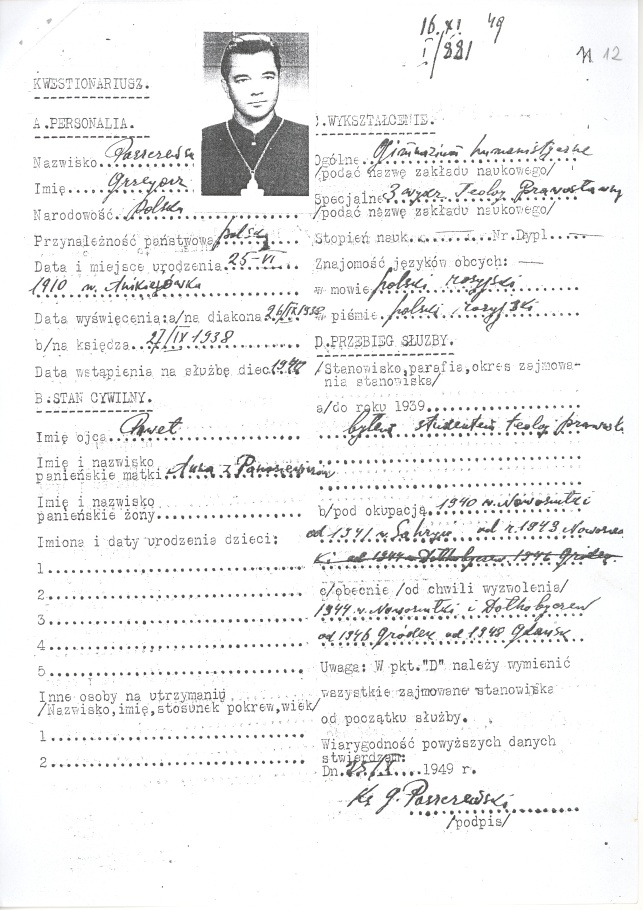 16 XI 49
I/881
N 12
KWESTIONARIUSZ.
A.PERSONALIA.
Nazwisko Paszczewski
Imię Grzegorz
Narodowość polska
Przynależność państwowa polska
Data i miejsce urodzenia 25-VI
1910 w.
Data wyświęcenia:a/na diakona 26/IX 1938
b/na księdza 27/IX 1938
Data wstąpienia na służbę diec.
B.STAN CYWILNY.
Imię ojca Paweł
Imię i nazwisko
panieńskie matki Anna z
Imię i nazwisko
panieńskie żony
Imiona i daty urodzenia dzieci:
1
2
3
4
5
Inne osoby na utrzymaniu
/Nazwisko,imię,stosunek pokrew,wiek/
1
2
C.WYKSZTAŁCENIE.
Ogólne Gimnazium humanistyczne
/podać nazwę zakładu naukowego/
Specjalne 3 wydz. Teolog Prawosławny
/podać nazwę zakładu naukowego/
Stopień nauk. — Nr.Dypl. —
Znajomość języków obcych: —
w mowie polski rosyjski
w piśmie polski rosyjski
D.PRZEBIEG SŁUŻBY.
/Stanowisko,parafia,okres zajmowa-
nia stanowiska/
a/do roku 1939
byłem studentem teolog prawosł
b/pod okupacją 1940 w. Nowosiółki
od 1941 w. Sahryń od r. 1943 Nowosiół
ki od 1944 Dołhobyczew 1946 Gródek
c/obecnie /od chwili wyzwolenia/
1944 w. Nowosiułki i Dołhobyczew
od 1946 Gródek od 1948 Gdańsk
Uwaga: W pkt."D" należy wymienić
wszystkie zajmowane stanowiska
od początku służby.
Wiarygodność powyższych danych
stwierdzam:
Dn. 25/X 1949 r.
Ks G. Paszczewski
/podpis/